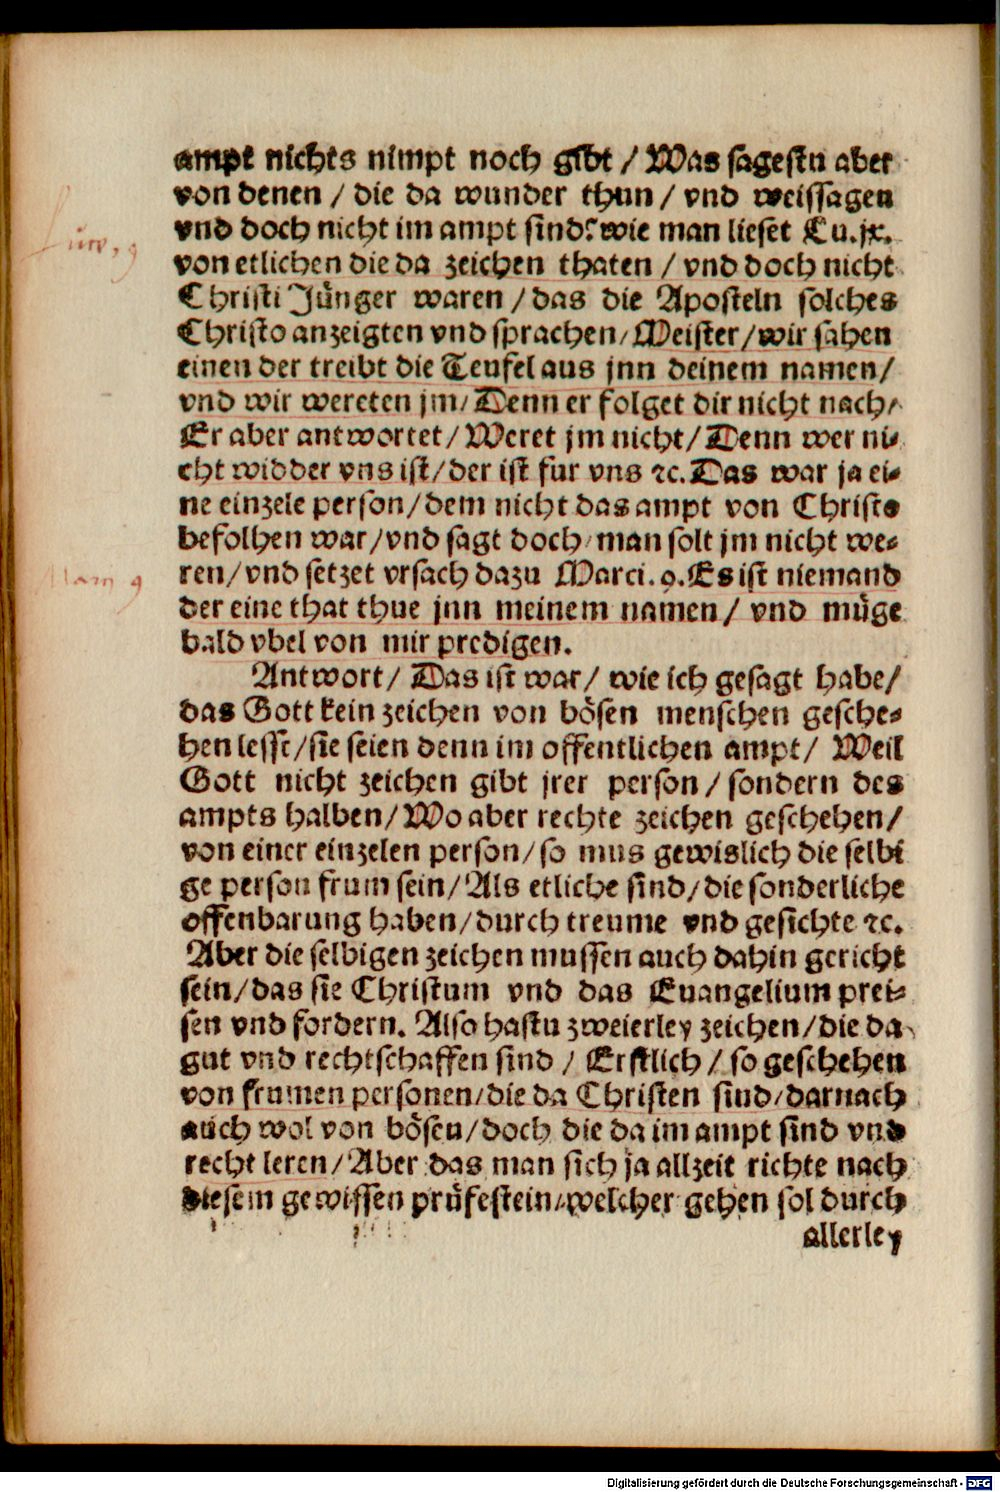 ampt nichts nimpt noch gibt / Was sagestu aber
von denen / die da wunder thun / vnd weissagen
vnd doch nicht im ampt sind? wie man lieset Lu. jx.
von etlichen die da zeichen thaten / vnd doch nicht
Christi Jünger waren / das die Aposteln solches
Christo anzeigten vnd sprachen / Meister / wir sahen
einen der treibt die Teufel aus jnn deinem namen /
vnd wir wereten jm / Denn er folget dir nicht nach /
Er aber antwortet / Weret jm nicht / Denn wer ni-
cht widder vns ist / der ist fur vns ꝛc. Das war ja ei-
ne einzele person / dem nicht das ampt von Christo
befolhen war / vnd sagt doch / man solt jm nicht we-
ren / vnd setzet vrsach dazu Marci. 9. Es ist niemand
der eine that thue jnn meinem namen / vnd müge
bald vbel von mir predigen.
Antwort / Das ist war / wie ich gesagt habe /
das Gott kein zeichen von bösen menschen gesche-
hen lesst / sie seien denn im offentlichen ampt / Weil
Gott nicht zeichen gibt jrer person / sondern des
ampts halben / Wo aber rechte zeichen geschehen /
von einer einzelen person / so mus gewislich die selbi
ge person frum sein / Als etliche sind / die sonderliche
offenbarung haben / durch treume vnd gesichte ꝛc.
Aber die selbigen zeichen mussen auch dahin gericht
sein / das sie Christum vnd das Euangelium prei-
sen vnd fordern. Also hastu zweierley zeichen / die da
gut vnd rechtschaffen sind / Erstlich / so geschehen
von frumen personen / die da Christen sind / darnach
auch wol von bösen / doch die da im ampt sind vnd
recht leren / Aber das man sich ja allzeit richte nach
diesem gewissen prüfestein / welcher gehen sol durch
allerley
Digitalisierung gefördert durch die Deutsche Forschungsgemeinschaft - DFG